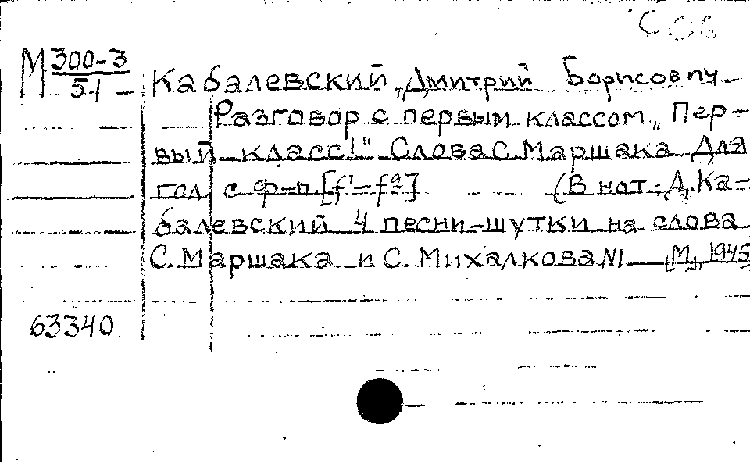 М 300-3
51
Кабалевский, Дмитрий Борисович
Разговор с первым классом „Пер-
вый класс!" Слова С. Маршака Для
гол. с ф-п. [f¹-f²] (В нот: Д. Ка-
балевский 4 песни-шутки на слова
С. Маршака и С. Михалкова, N1 М, 1945
63340